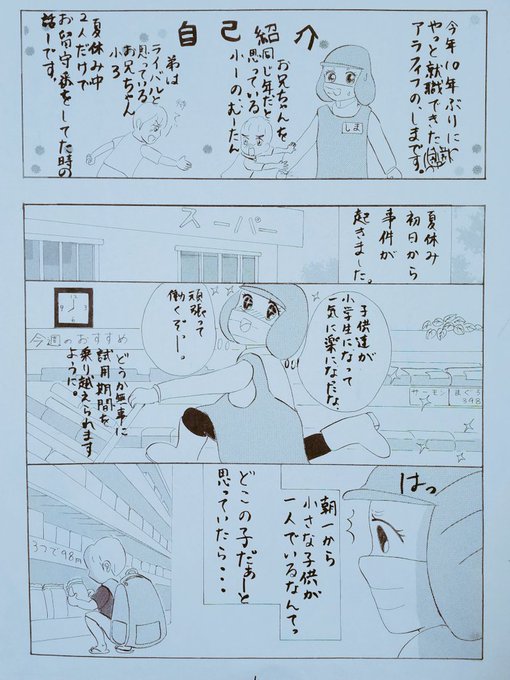 自己紹介
今年10年ぶりに
やっと就職できた
アラフィフのしまです。
しま
お兄ちゃんを
同じ年だと
思っている
小一のむーたん
弟は
ライバルと
思っている
お兄ちゃん
小3
夏休み中
2人だけで
お留守番をしてた時の
話しです。
夏休み
初日から
事件が
起きました。
スーパー
子供達が
小学生になって
一気に楽になだな。
頑張って
働くぞー。
今週のおすすめ
どうか無事に
試用期間を
乗り越えられます
ように。
サーモン
まぐろ
398
はっ
朝一から
小さな子供が
一人でいるなんてっ
どこの子だぁーと
思っていたら・・・
3つで98円